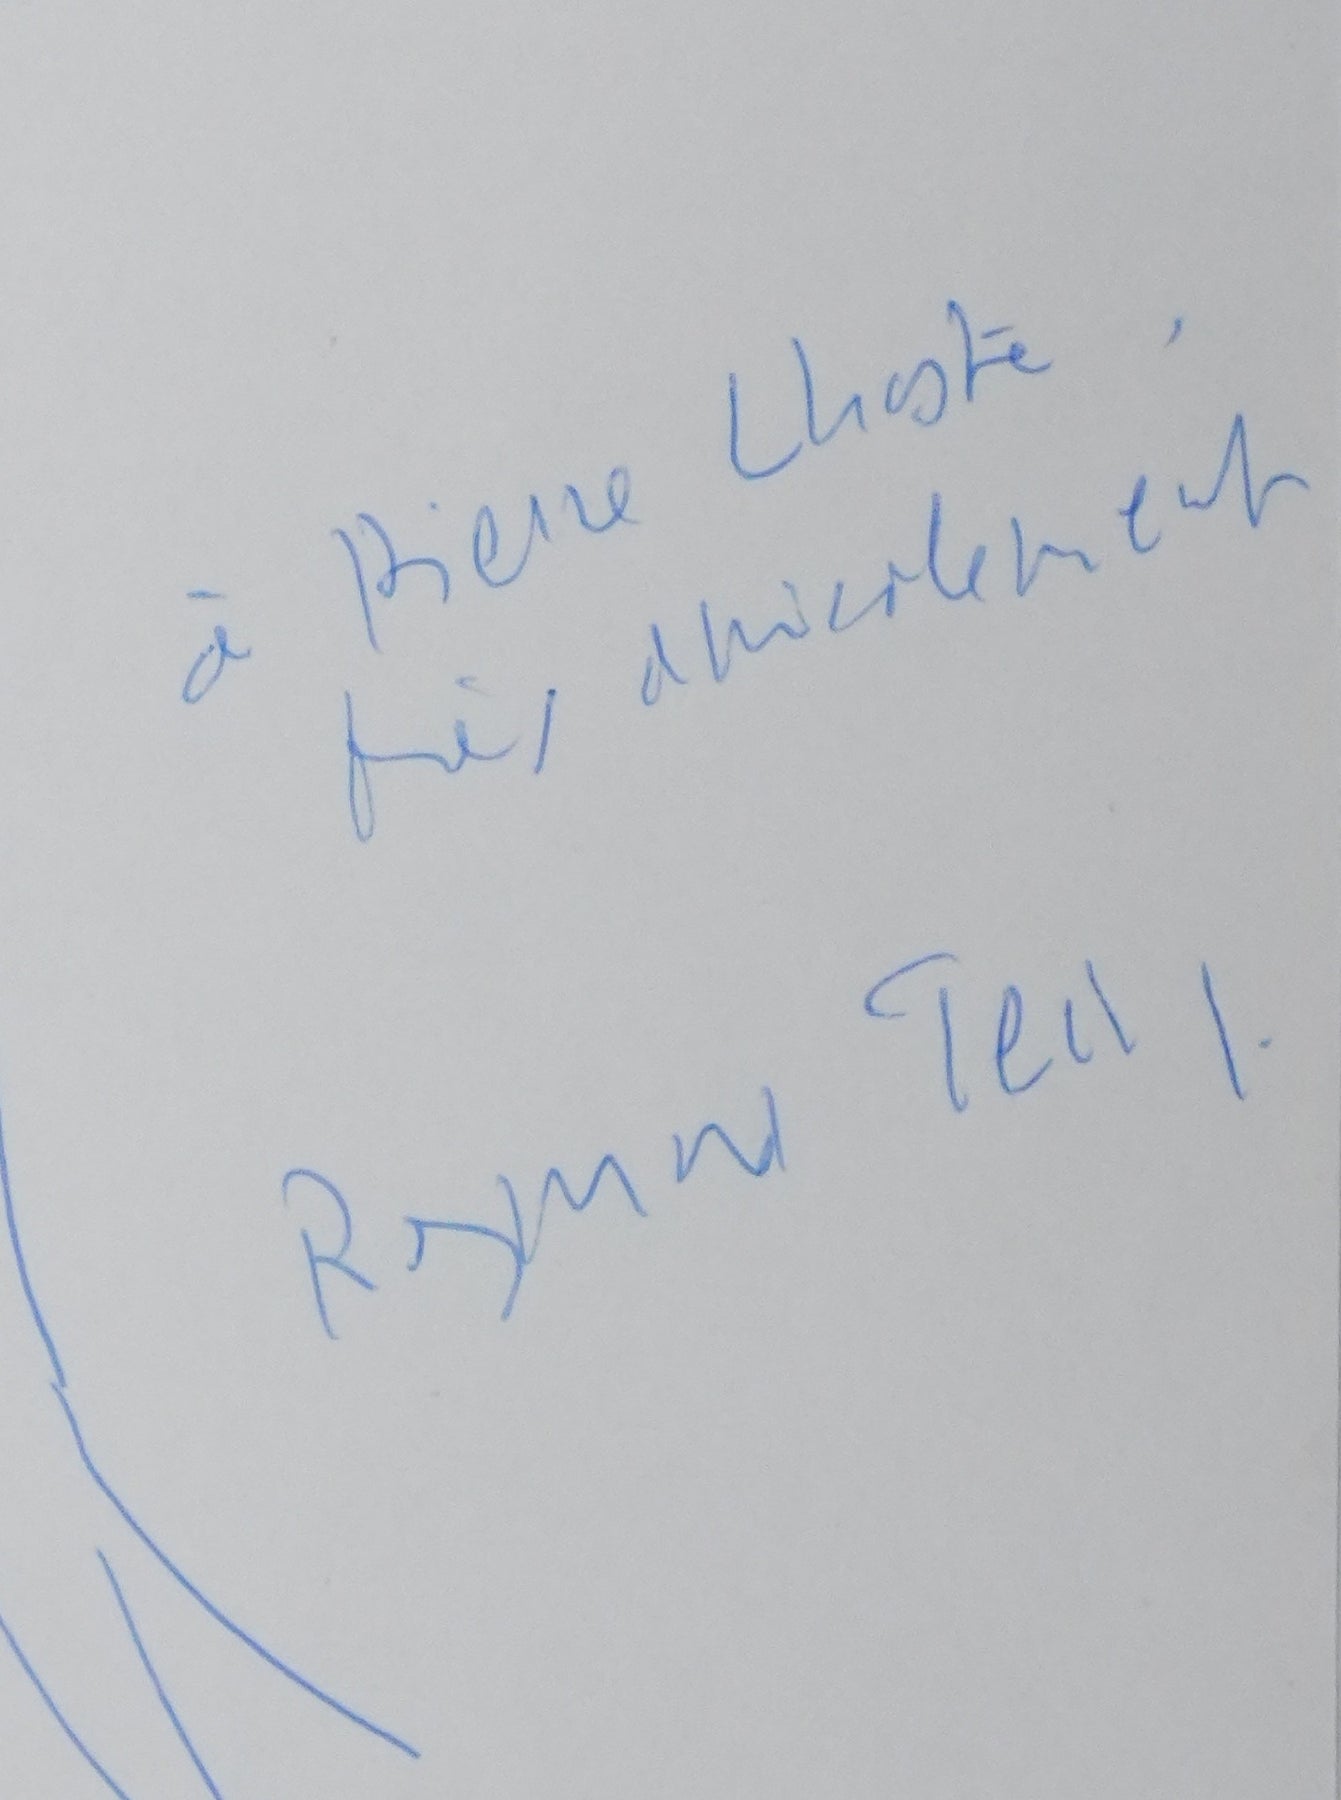 à Pierre Lhoste,
très amicalement
Raymond